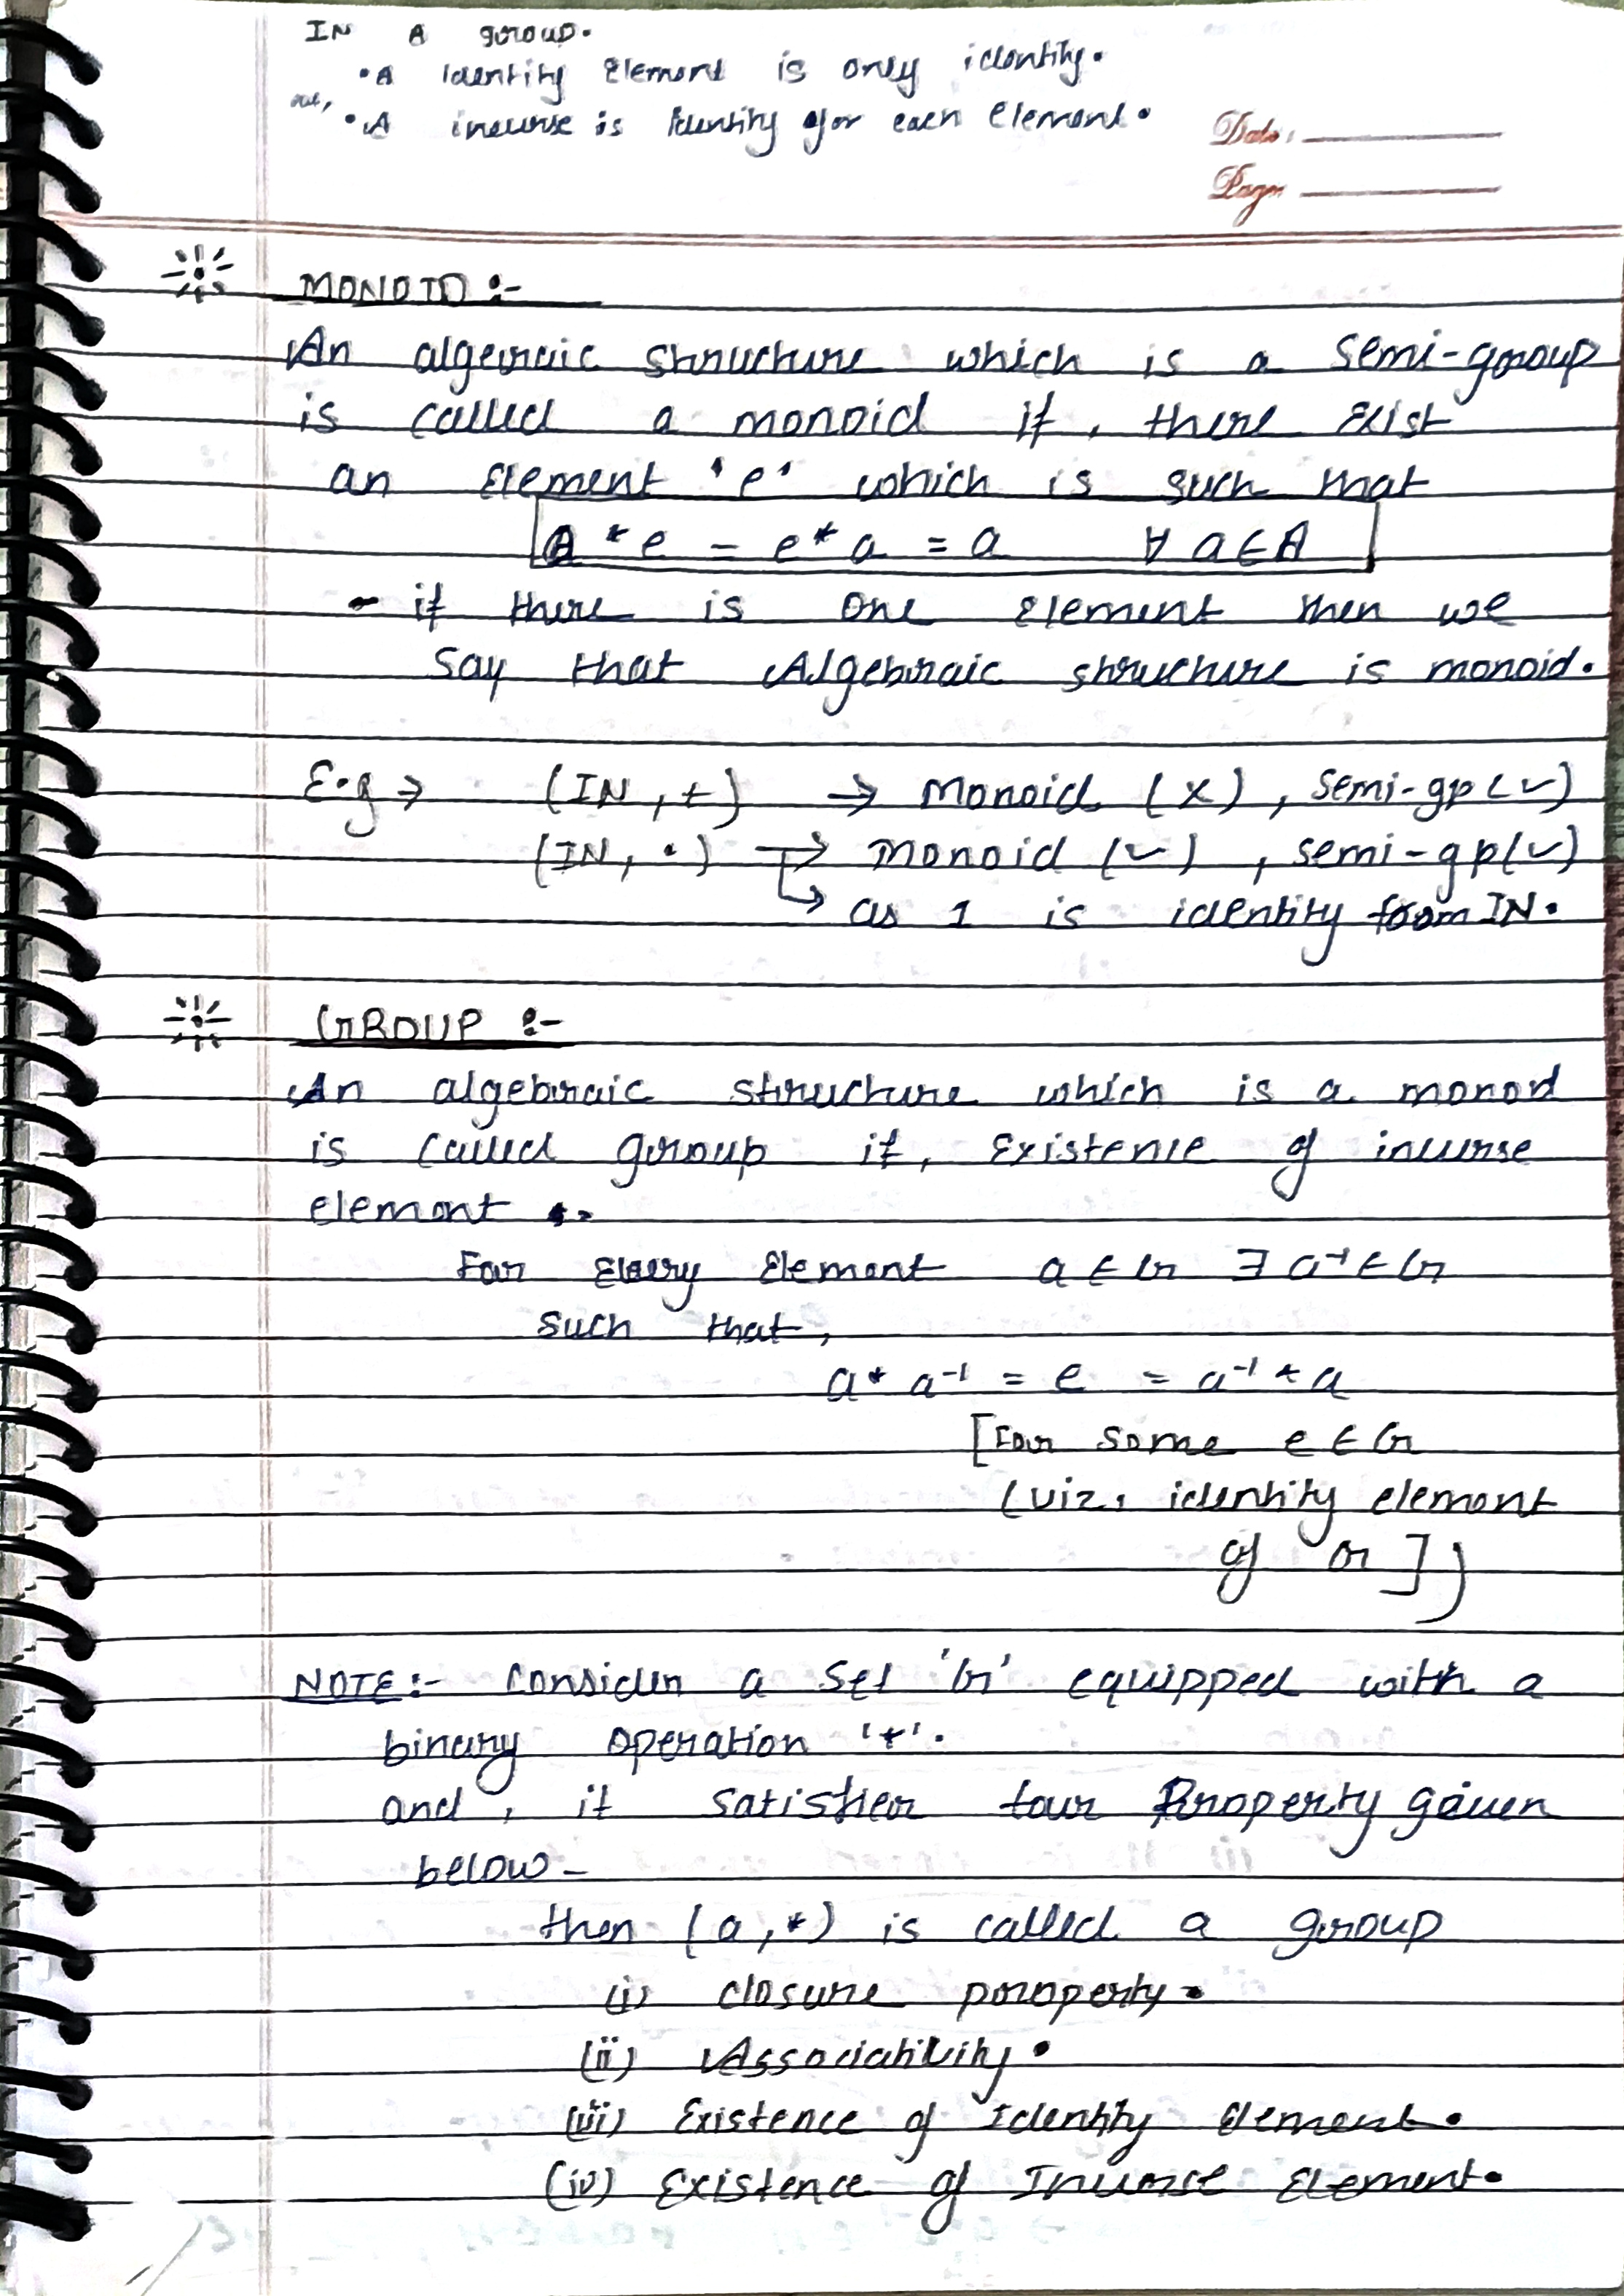 IN A group.
• A Identity Element is only identity.
• A inverse is identity for each element.
Date:
Page:
MONOID :-
An algebraic structure which is a semi-group
is called a monoid if, there exist
an element 'e' which is such that
a * e = e * a = a ∀ a ∈ A
- if there is one element then we
say that Algebraic structure is monoid.
E.g → (IN, +) → Monoid (×), semi-gp (✓)
(IN, •) → Monoid (✓), semi-gp (✓)
↳ as 1 is identity from IN.
GROUP :-
An algebraic structure which is a monoid
is called group if, existence of inverse
element.
For every element a ∈ G ∃ a⁻¹ ∈ G
such that,
a * a⁻¹ = e = a⁻¹ * a
[For some e ∈ G
(viz. identity element
of G])
NOTE:- Consider a set 'G' equipped with a
binary operation '*'.
and, it satisfies four Property given
below -
then (a, *) is called a group
(i) closure property.
(ii) Associativity.
(iii) Existence of Identity Element.
(iv) Existence of Inverse Element.